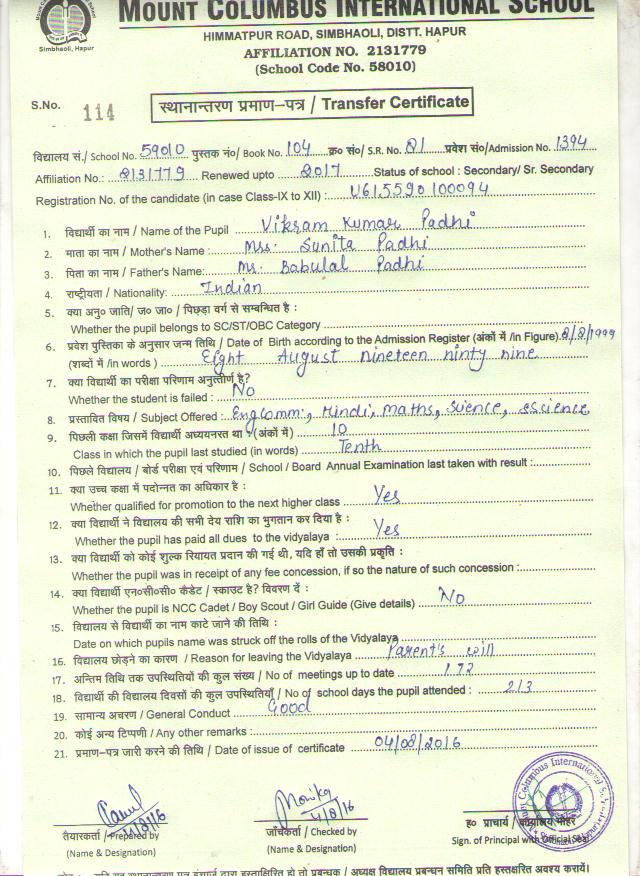 MOUNT COLUMBUS INTERNATIONAL SCHOOL
Simbhaoli, Hapur
HIMMATPUR ROAD, SIMBHAOLI, DISTT. HAPUR
AFFILIATION NO. 2131779
(School Code No. 58010)
S.No. 114
स्थानान्तरण प्रमाण-पत्र / Transfer Certificate
विद्यालय सं./ School No. 59010 पुस्तक नं०/ Book No. 104 क्र० सं०/ S.R. No. 01 प्रवेश सं०/Admission No. 1394
Affiliation No.: 2131779 Renewed upto 2017 Status of school : Secondary/ Sr. Secondary
Registration No. of the candidate (in case Class-IX to XII) : U615590100094
1. विद्यार्थी का नाम / Name of the Pupil Vikram Kumar Padhi
2. माता का नाम / Mother's Name : Mrs. Sunita Padhi
3. पिता का नाम / Father's Name: Mr. Babulal Padhi
4. राष्ट्रीयता / Nationality: Indian
5. क्या अनु० जाति/ ज० जा० / पिछड़ा वर्ग से सम्बन्धित है :
Whether the pupil belongs to SC/ST/OBC Category
6. प्रवेश पुस्तिका के अनुसार जन्म तिथि / Date of Birth according to the Admission Register (अंकों में /in Figure) 8/8/1999
(शब्दों में /in words ) Eight August nineteen ninty nine
7. क्या विद्यार्थी का परीक्षा परिणाम अनुत्तीर्ण है?
Whether the student is failed : No
8. प्रस्तावित विषय / Subject Offered : Eng comm:, Hindi, Maths, Science, sscience
9. पिछली कक्षा जिसमें विद्यार्थी अध्ययनरत था :-(अंकों में ) 10
Class in which the pupil last studied (in words) Tenth
10. पिछले विद्यालय / बोर्ड परीक्षा एवं परिणाम / School / Board Annual Examination last taken with result :
11. क्या उच्च कक्षा में पदोन्नत का अधिकार है :
Whether qualified for promotion to the next higher class Yes
12. क्या विद्यार्थी ने विद्यालय की सभी देय राशि का भुगतान कर दिया है :
Whether the pupil has paid all dues to the vidyalaya : Yes
13. क्या विद्यार्थी को कोई शुल्क रियायत प्रदान की गई थी, यदि हाँ तो उसकी प्रकृति :
Whether the pupil was in receipt of any fee concession, if so the nature of such concession :
14. क्या विद्यार्थी एन०सी०सी० कैडेट / स्काउट है? विवरण दें :
Whether the pupil is NCC Cadet / Boy Scout / Girl Guide (Give details) No
15. विद्यालय से विद्यार्थी का नाम काटे जाने की तिथि :
Date on which pupils name was struck off the rolls of the Vidyalaya
16. विद्यालय छोड़ने का कारण / Reason for leaving the Vidyalaya Parent's will
17. अन्तिम तिथि तक उपस्थितियों की कुल संख्य / No of meetings up to date 172
18. विद्यार्थी की विद्यालय दिवसों की कुल उपस्थितियाँ / No of school days the pupil attended : 213
19. सामान्य अचरण / General Conduct Good
20. कोई अन्य टिप्पणी / Any other remarks :
21. प्रमाण-पत्र जारी करने की तिथि / Date of issue of certificate 04/08/2016
4/8/16 Monika 4/8/16
तैयारकर्ता / Prepared by जाँचकर्ता / Checked by ह० प्राचार्य / कार्यालय मोहर
(Name & Designation) (Name & Designation) Sign. of Principal with Official Seal
Mount Columbus International